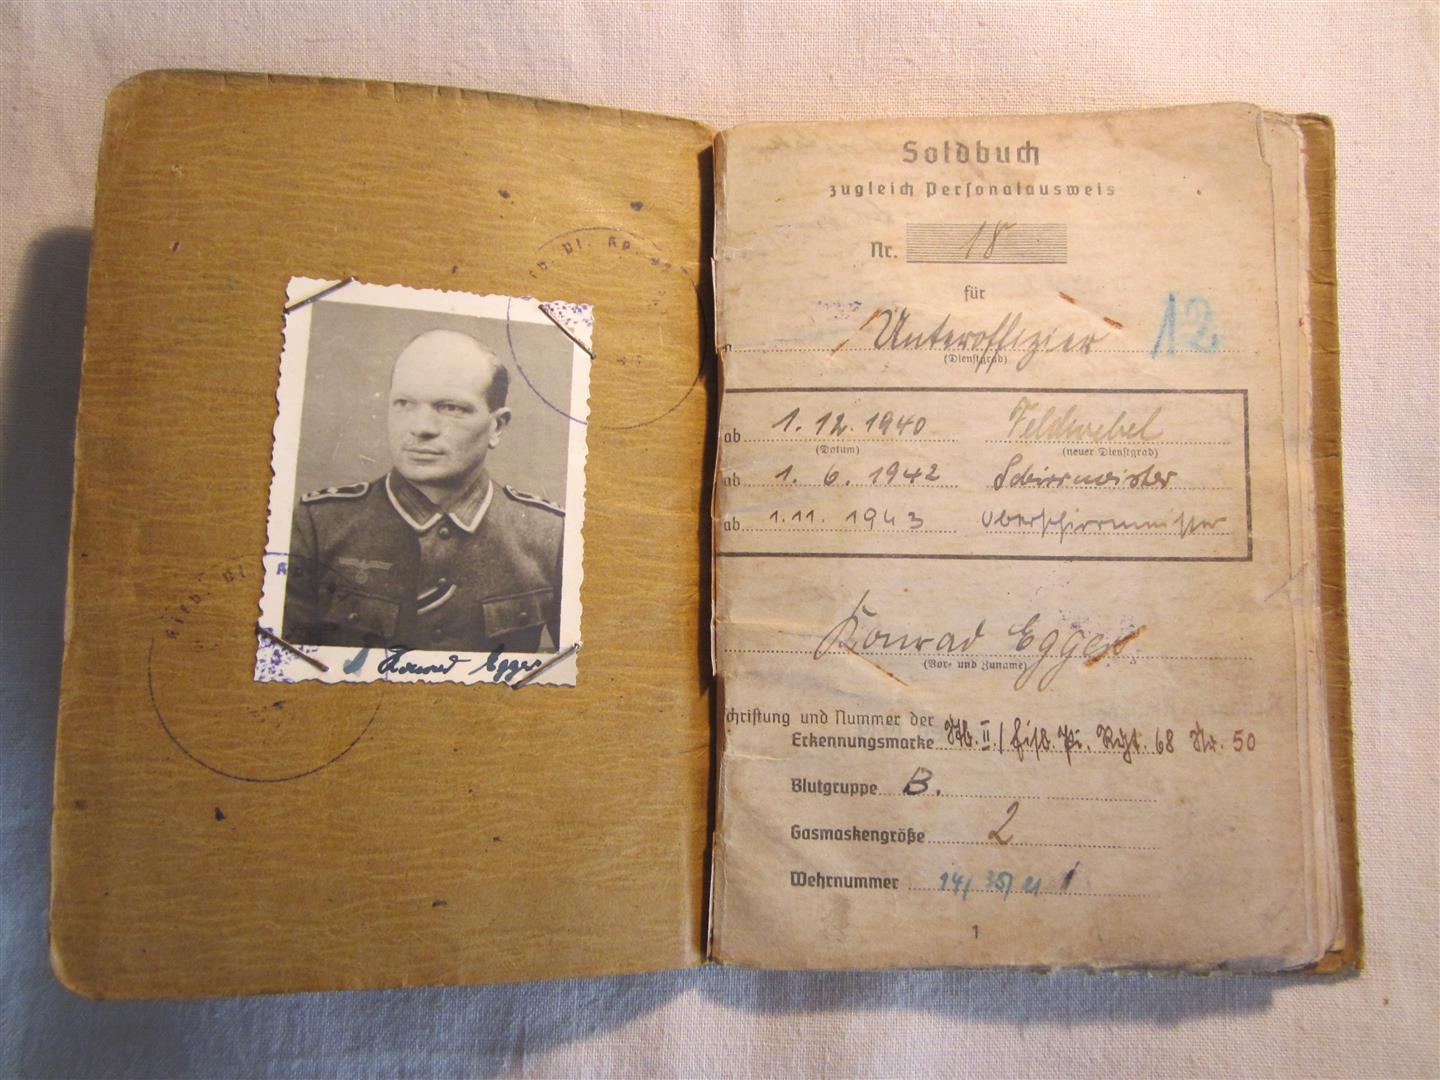 Konrad Egger
Soldbuch
zugleich Personalausweis
Nr. 18
für
Unteroffizier 12
(Dienstgrad)
ab 1.12.1940 Feldwebel
(Datum) (neuer Dienstgrad)
ab 1. 6. 1942 Schirrmeister
ab 1.11. 1943 Oberschirrmeister
Konrad Egger
(Vor- und Zuname)
chriftung und Nummer der
Erkennungsmarke Stb. II/ Eisb. Pi. Rgt. 68 Nr. 50
Blutgruppe B.
Gasmaskengröße 2
Wehrnummer 14/ 35/
1